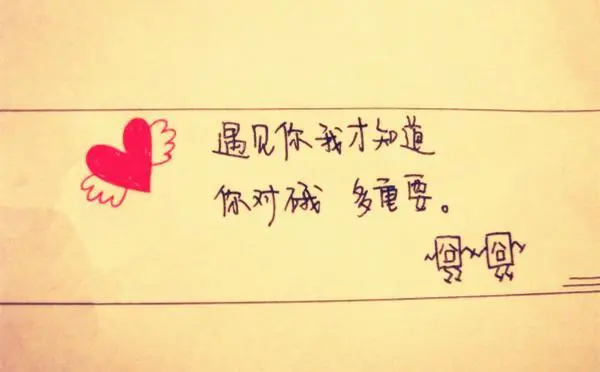 遇见你我才知道
你对硪 多重要。
囧囧